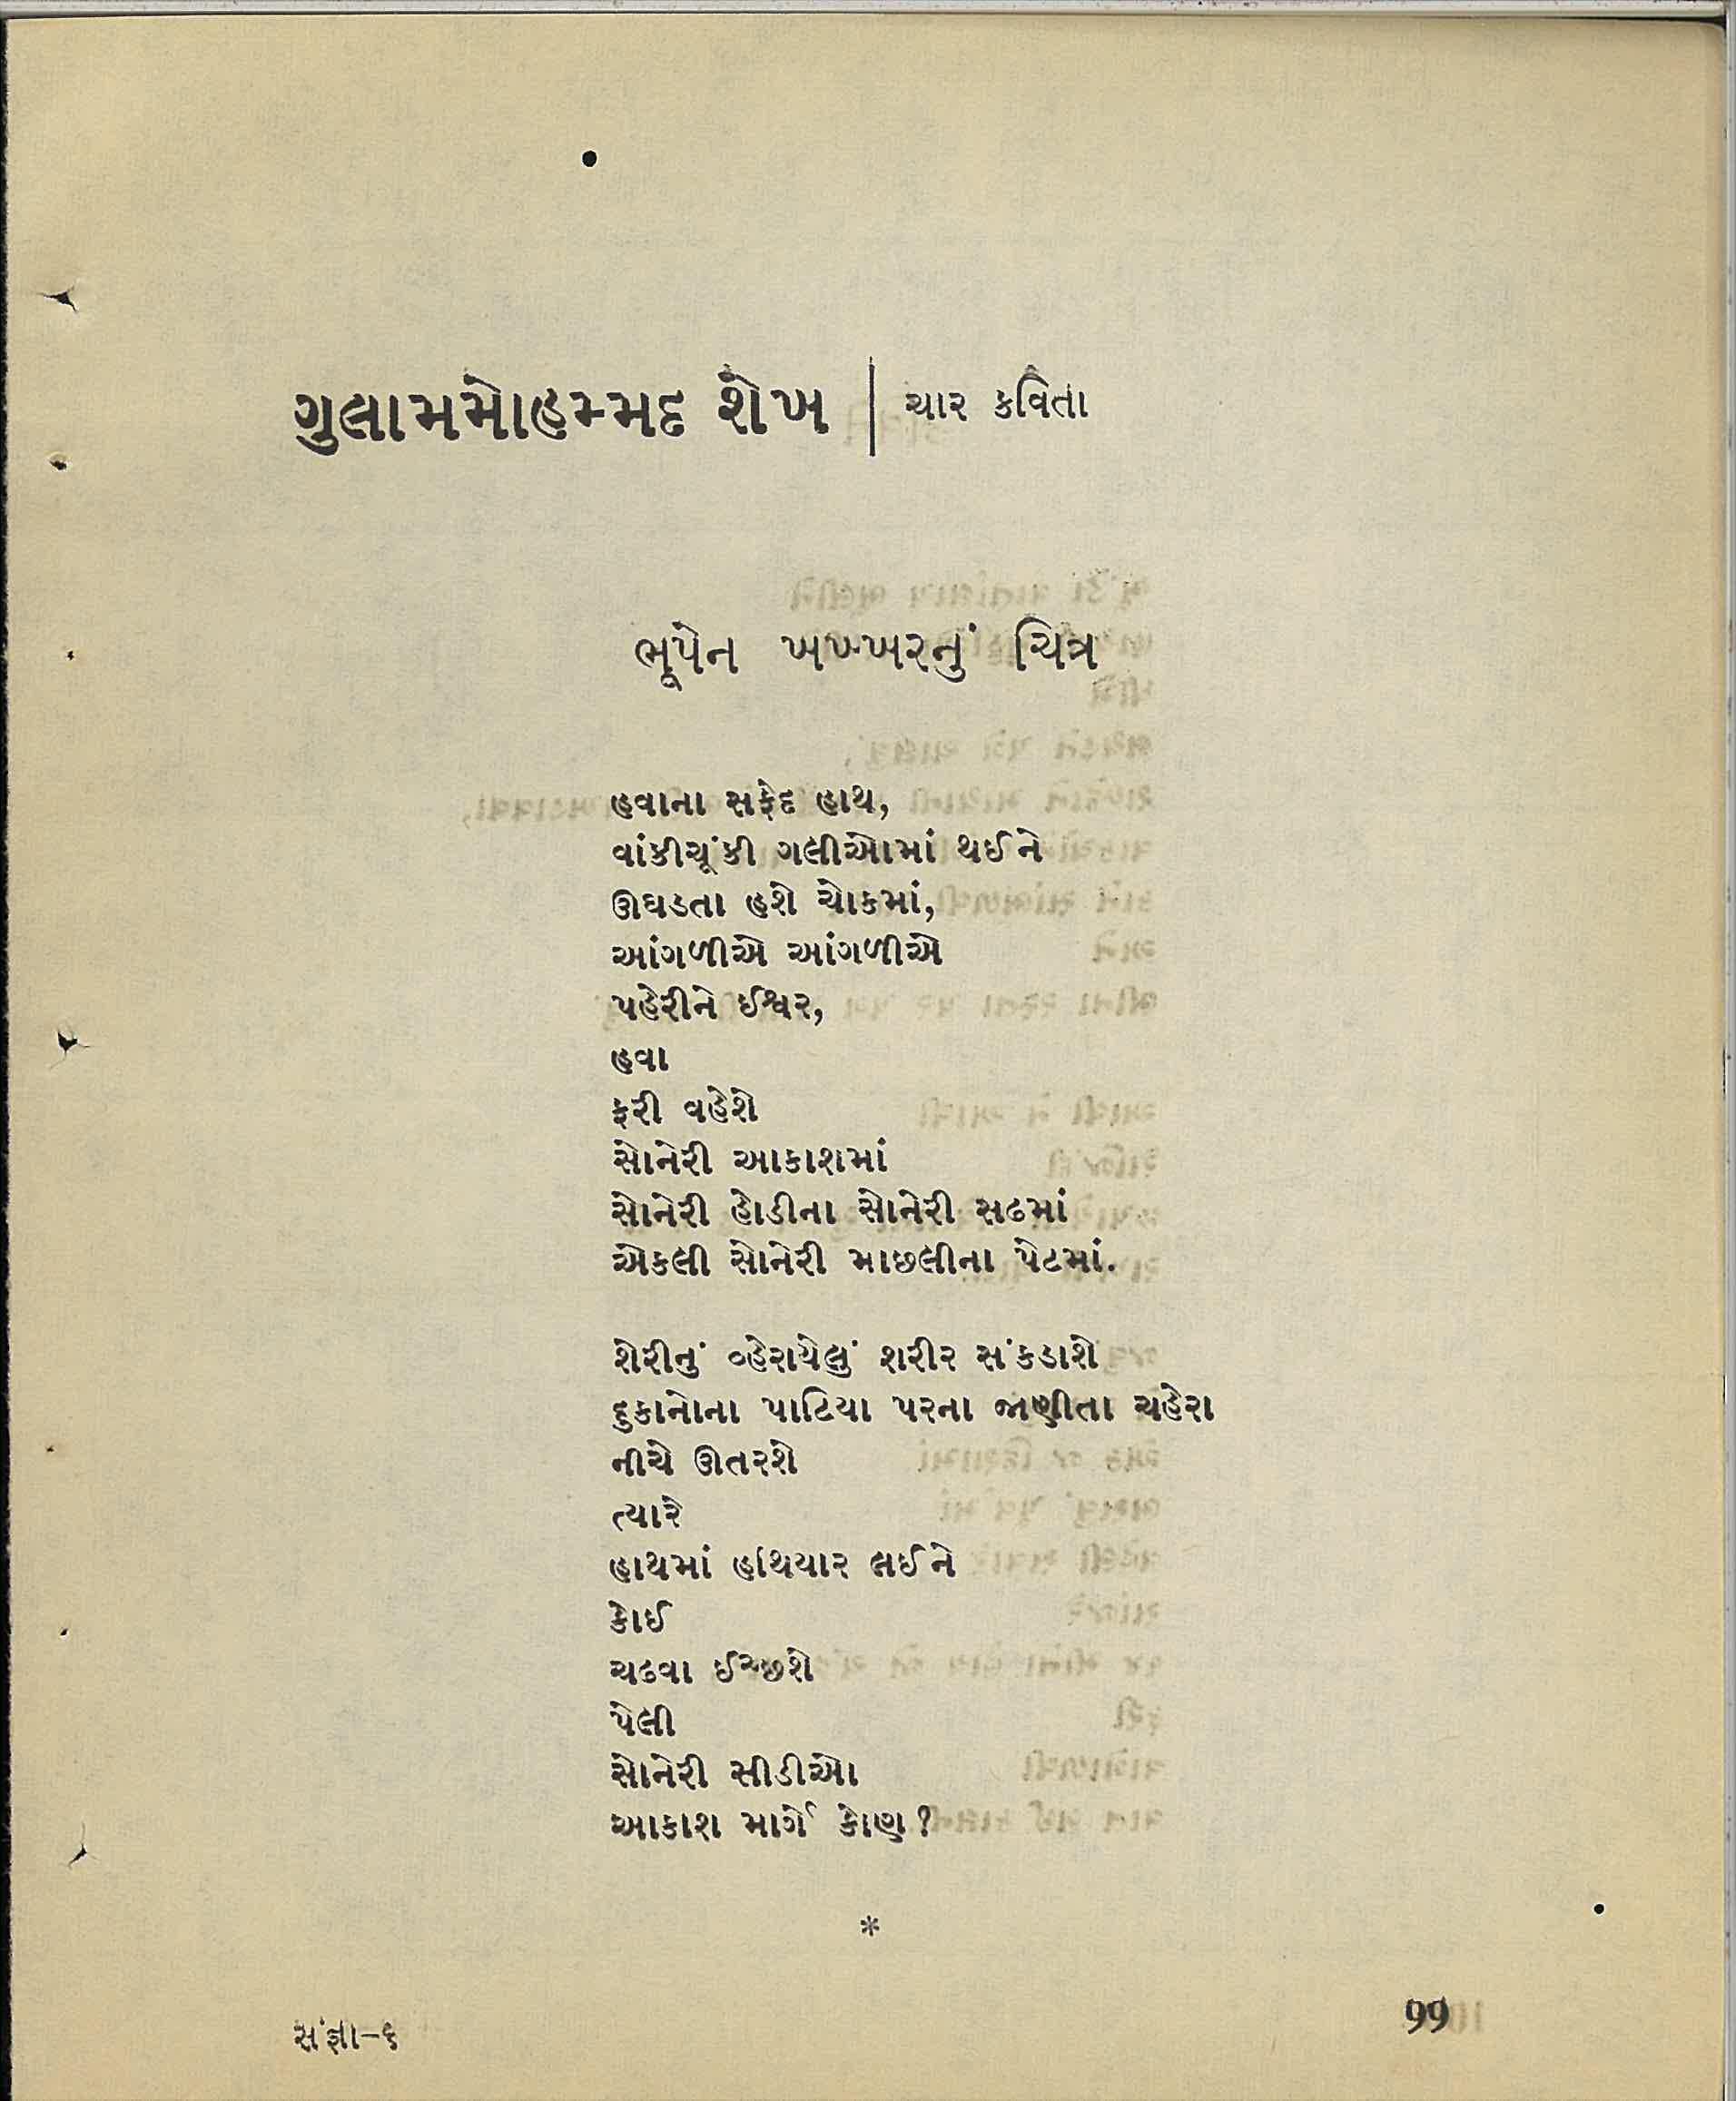 ગુલામમોહમ્મદ શેખ | ચાર કવિતા
ભૂપેન ખખ્ખરનું ચિત્ર
હવાના સફેદ હાથ,
વાંકીચૂંકી ગલીઓમાં થઈને
ઊઘડતા હશે ચોકમાં,
આંગળીએ આંગળીએ
પહેરીને ઈશ્વર,
હવા
ફરી વહેશે
સોનેરી આકાશમાં
સોનેરી હોડીના સોનેરી સઢમાં
એકલી સોનેરી માછલીના પેટમાં.
શેરીનું વ્હેરાયેલું શરીર સંકડાશે
દુકાનોના પાટિયા પરના જાણીતા ચહેરા
નીચે ઊતરશે
ત્યારે
હાથમાં હથિયાર લઈને
કોઈ
ચઢવા ઈચ્છશે
પેલી
સોનેરી સીડીઓ
આકાશ માર્ગે કોણ?
*
સંજ્ઞા-૬
99